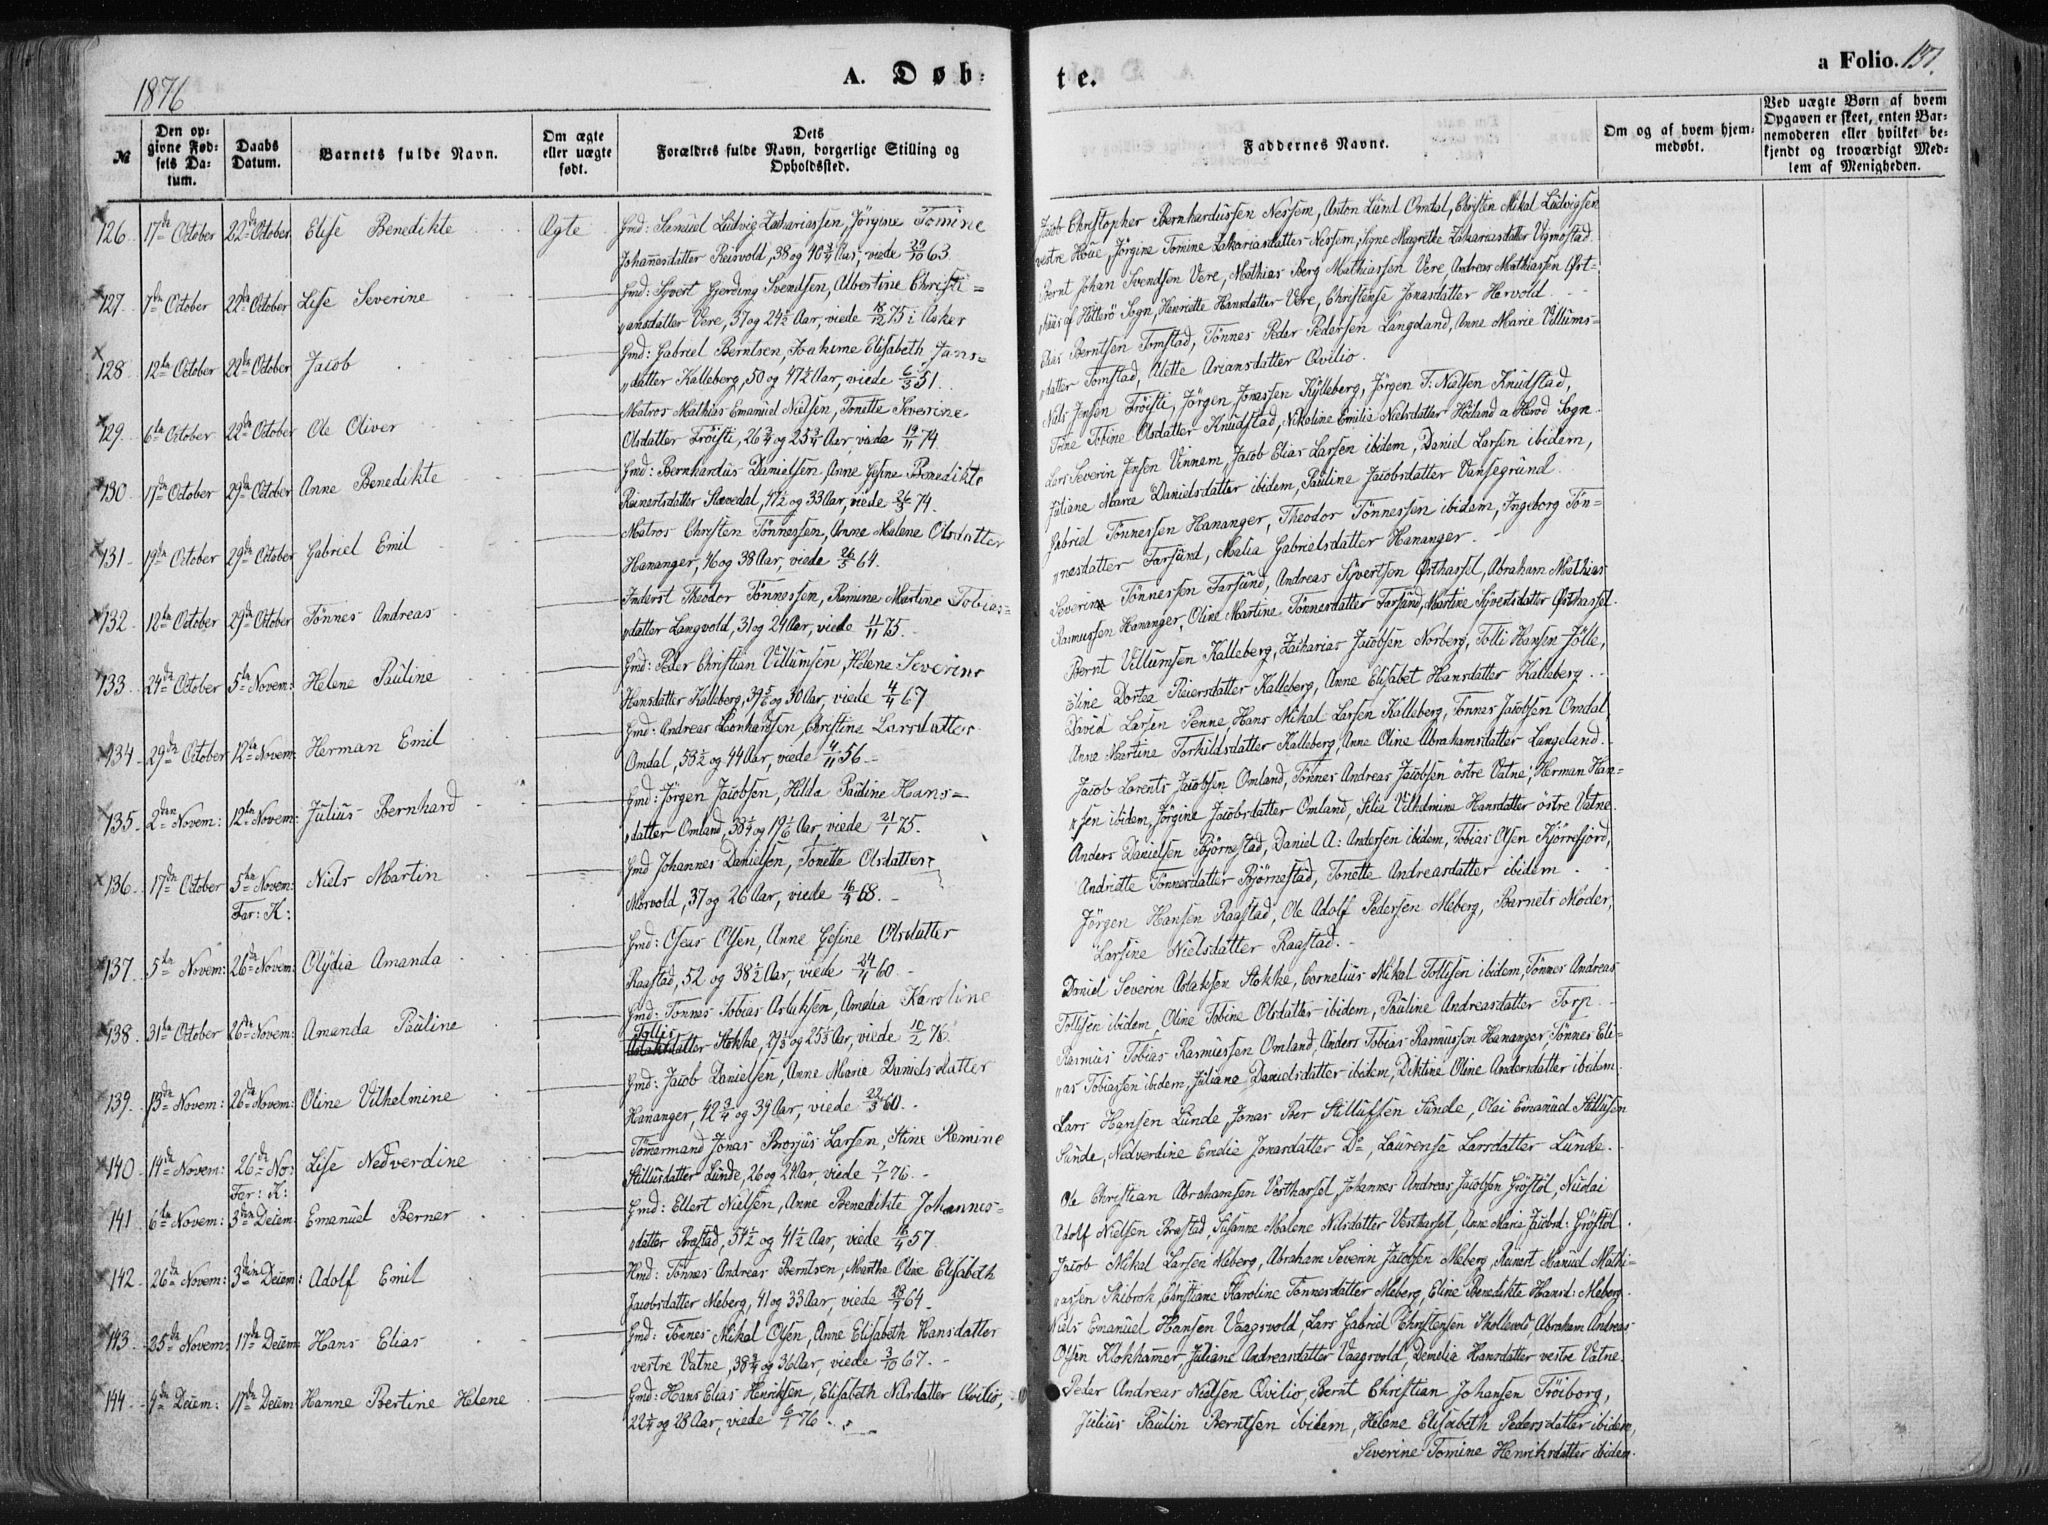 1876
A. Døb-
te.
a Folio. 137.
№
Den op-
givne Fød-
sels Da-
tum.
Daabs
Datum.
Barnets fulde Navn.
Om ægte
eller uægte
født.
Dets
Forældres fulde Navn, borgerlige Stilling og
Opholdssted.
Faddernes Navne.
Om og af hvem hjem-
medøbt.
Ved uægte Børn af hvem
Opgaven er skeet, enten Bar-
nemoderen eller hvilket be-
kjendt og troværdigt Med-
lem af Menigheden.
126 17de October 22de October Elise Benedikte Ægte Gmd: Samuel Ludvig Zachariassen, Jörgine Tomine
Johannesdatter Reisvold, 38 og 40 3/4 Aar, viede 29/10 63.
Jacob Christopher Bernhardussen Nessem, Anton Lund Omdal, Christen Mikal Ludvigsen
vestre Houe, Jörgine Tomine Zakariasdatter Nessem, Signe Magrethe Zakariasdatter Vigmostad.
127 7de October 22de October Lise Severine Gmd: Syvert Gjerding Svendsen, Albertine Christi=
„ansdatter Vere, 37 og 24 1/2 Aar, viede 18/12 75 i Asker
Bernt Johan Svendsen Vere, Mathias Berg Mathiassen Vere, Andreas Mathiassen Øst-
„huus af Hitterö Sogn, Henriette Hansdatter Vere, Christense Jonasdatter Hervold.
128 12te October 22de October Jacob Gmd: Gabriel Berntsen, Joakime Elisabeth Jans=
„datter Kalleberg, 50 og 47 1/2 Aar, viede 6/3 51.
Elias Berntsen Tomstad, Tönnes Peder Pedersen Langeland, Anne Marie Villums-
„datter Tomstad, Alette Ariansdatter Qvilio.
129. 6te October 22de October Ole Oliver Matros Mathias Emanuel Nielsen, Tonette Severine
Olsdatter Tröisti, 26 3/4 og 25 3/4 Aar, viede 19/11 74.
Niels Jensen Tröisti, Jörgen Jonassen Kylleberg, Jörgen T: Nielsen Knudstad,
Trine Tobine Olsdatter Knudstad, Nikoline Emilie Nielsdatter Höiland a Herod Sogn.
130 17de October 29de October Anne Benedikte Gmd: Bernhardus Danielsen, Anne Gesine Benedikte
Reinertsdatter Stavedal, 47 1/2 og 33 Aar, viede 26/3 74.
Lars Severin Jensen Vinnem, Jacob Elias Larsen ibidem, Daniel Larsen ibidem,
Juliane Marie Danielsdatter ibidem, Pauline Jacobsdatter Vansegrund.
131 19de October 29de October Gabriel Emil Matros Christen Tönnessen, Anne Malene Olsdatter
Hananger, 46 og 38 Aar, viede 26/5 64.
Gabriel Tönnessen Hananger, Theodor Tönnessen ibidem, Ingeborg Tön=
„nesdatter Farsund, Malia Gabrielsdatter Hananger.
132 12te October 29de October Tönnes Andreas Inderst Theodor Tönnessen, Remine Martine Tobias=
„datter Langvold, 31 og 24 Aar, viede 11/11 75.
Severin Tönnessen Farsund, Andreas Syvertsen Østhassel, Abraham Mathias
Rasmussen Hananger, Oline Martine Tönnesdatter Farsund, Martine Syvertsdatter Østhassel.
133 24de October 5te Novem: Helene Pauline Gmd: Peder Christian Villumsen, Helene Severine
Hansdatter Kalleberg, 39 5/6 og 30 Aar, viede 4/4 67
Bernt Villumsen Kalleberg, Zacharias Jacobsen Norberg, Tolli Hansen Jölle,
Eline Dortea Reiersdatter Kalleberg, Anne Elisabet Hansdatter Kalleberg.
134 29de October 12te Novem: Herman Emil Gmd: Andreas Leonhardsen, Christine Larsdatter
Omdal, 53 1/2 og 44 Aar, viede 4/11 56.
David Larsen Penne, Hans Mikal Larsen Kalleberg, Tönnes Jacobsen Omdal,
Anna Martine Torkildsdatter Kalleberg, Anne Oline Abrahamsdatter Langeland.
135 2den Novem: 12te Novem: Julius Bernhard Gmd: Jörgen Jacobsen, Hilda Pauline Hans=
„datter Omland, 38 1/4 og 19 1/6 Aar, viede 21/1 75.
Jacob Lorents Jacobsen Omland, Tönnes Andreas Jacobsen östre Vatne, Herman Han=
„sen ibidem, Jörgine Jacobsdatter Omland, Silia Vilhelmine Hansdatter östre Vatne.
136 17de October 5te Novem: Far: K: Niels Martin Gmd Johannes Danielsen, Tonette Olsdatter
Morvold, 37 og 26 Aar, viede 16/4 68.
Anders Danielsen Björnestad, Daniel A: Andersen ibidem, Tobias Olsen Kjörrefjord,
Andriette Tönnesdatter Björnestad, Tonette Andreasdatter ibidem
137 5te Novem: 26de Novem: Olydia Amanda Gmd: Oseas Olsen, Anne Gesine Olsdatter
Raastad, 52 og 38 1/2 Aar, viede 24/4 60.
Jörgen Hansen Raastad, Ole Adolf Pedersen Meberg, Barnets Moder,
Larsine Nielsdatter Raastad.
138 31te October 26de Novem: Amanda Pauline Gmd: Tönnes Tobias Aslaksen, Amalia Karoline
Tollisdatter Stokke, 27 1/3 og 25 1/3 Aar, viede 10/2 76.
Daniel Severin Aslaksen Stokke, Cornelius Mikal Tollisen ibidem, Tönnes Andreas
Tollisen ibidem, Oline Tobine Olsdatter ibidem, Pauline Andreasdatter Torp.
139 13de Novem: 26de Novem: Oline Vilhelmine Gmd: Jacob Danielsen, Anne Marie Danielsdatter
Hananger, 42 3/4 og 39 Aar, viede 22/3 60.
Rasmus Tobias Rasmussen Omland, Anders Tobias Rasmussen Hananger, Tönnes Eli-
„as Tobiassen ibidem, Juliane Danielsdatter ibidem, Diktine Oline Andersdatter ibidem.
140 14de Novem: 26de No: Far: K: Lise Nedverdine Tömmermand Jonas Brorjus Larsen, Stine Remine
Stillufsdatter Lunde, 26 og 24 Aar, viede 7/1 76.
Lars Hansen Lunde, Jonas Ber Stillufsen Sunde, Olai Emanuel Stillufsen
Sunde, Nedverdine Emelie Jonasdatter Do, Laurense Larsdatter Lunde.
141 6te Novem: 3die Decem: Emanuel Berner Gmd: Ellert Nielsen, Anne Benedikte Johannes=
„datter Brastad, 54 1/2 og 41 1/2 Aar, viede 16/4 57.
Ole Christian Abrahamsen Vesthassel, Johannes Andreas Jacobsen Gröstöl, Nicolai
Adolf Nielsen Brastad, Susanne Malene Nilsdatter Vesthassel, Anne Maria Jacobsd: Gröstöl.
142 26de Novem: 3die Decem: Adolf Emil Hmd: Tönnes Andreas Berntsen, Marthe Oline Elisabeth
Jacobsdatter Meberg, 41 og 33 Aar, viede 28/4 64.
Jacob Mikal Larsen Meberg, Abraham Severin Jacobsen Meberg, Reinert Manuel Mathi-
„assen Skibrok, Christiane Karoline Tönnesdatter Meberg, Eline Benedikte Hansd: Meberg.
143 25de Novem: 17de Decem: Hans Elias Gmd: Tönnes Mikal Olsen, Anne Elisabeth Hansdatter
vestre Vatne, 38 3/4 og 36 Aar, viede 3/10 67.
Niels Emanuel Hansen Vaagsvold, Lars Gabriel Christensen Skollevold, Abraham Andreas
Olsen Klokhamer, Juliane Andreasdatter Vaagsvold, Demilia Hansdatter vestre Vatne.
144 9de Decem: 17de Decem Hanne Bertine Helene Gmd: Hans Elias Henriksen, Elisabeth Nilsdatter Qvilio,
22 1/4 og 28 Aar, viede 6/1 76
Peder Andreas Nielsen Qvilio, Bernt Christian Johansen Tröiborg,
Julius Paulin Berntsen ibidem, Helene Elisabeth Pedersdatter ibidem,
Severine Tomine Henriksdatter ibidem.